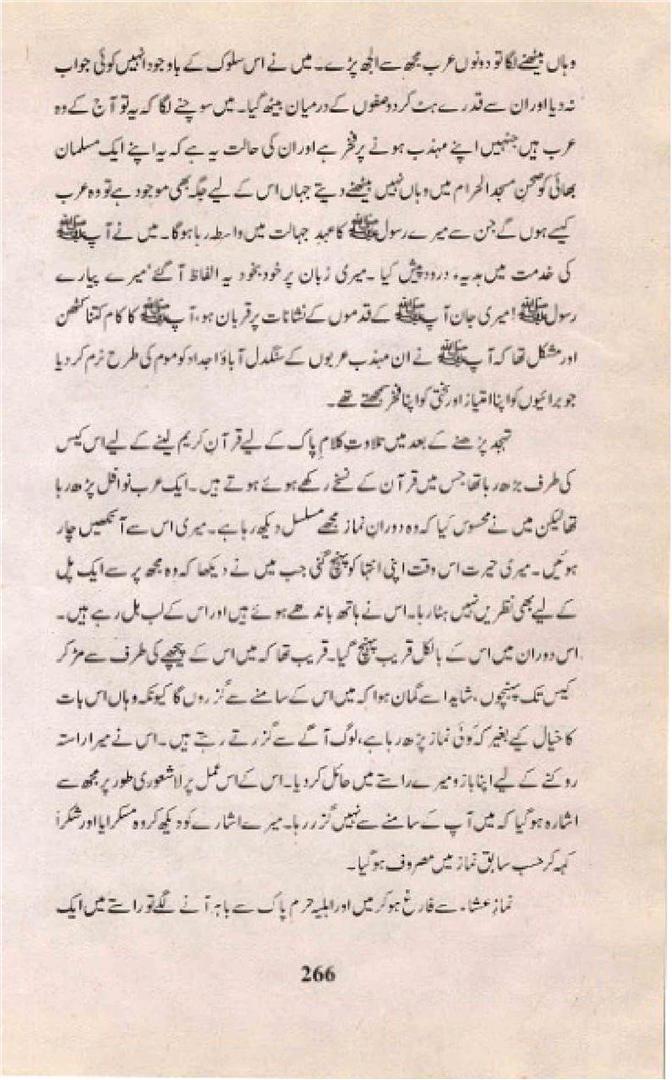 وہاں بیٹھنے لگا تو دونوں عرب مجھ سے الجھ پڑے۔ میں نے اس سلوک کے باوجود انہیں کوئی جواب
نہ دیا اور ان سے قدرے ہٹ کر دو صفوں کے درمیان بیٹھ گیا۔ میں سوچنے لگا کہ یہ تو آج کے وہ
عرب ہیں جنہیں اپنے مہذب ہونے پر فخر ہے اور ان کی حالت یہ ہے کہ یہ اپنے ایک مسلمان
بھائی کو صحن مسجد الحرام میں وہاں نہیں بیٹھنے دیتے جہاں اس کے لیے جگہ بھی موجود ہے تو وہ عرب
کیسے ہوں گے جن سے میرے رسول ﷺ کا عہد جہالت میں واسطہ رہا ہوگا۔ میں نے آپ ﷺ
کی خدمت میں ہدیہء درود پیش کیا۔ میری زبان پر خود بخود یہ الفاظ آ گئے ’میرے پیارے
رسول ﷺ! میری جان آپ ﷺ کے قدموں کے نشانات پر قربان ہو، آپ ﷺ کا کام کتنا کٹھن
اور مشکل تھا کہ آپ ﷺ نے ان مہذب عربوں کے سنگدل آباؤ اجداد کو موم کی طرح نرم کر دیا
جو برائیوں کو اپنا امتیاز اور سختی کو اپنا فخر سمجھتے تھے۔
تہجد پڑھنے کے بعد میں تلاوتِ کلام پاک کے لیے قرآن کریم لینے کے لیے اس کیس
کی طرف بڑھ رہا تھا جس میں قرآن کے نسخے رکھے ہوئے ہوتے ہیں۔ ایک عرب نوافل پڑھ رہا
تھا لیکن میں نے محسوس کیا کہ وہ دوران نماز مجھے مسلسل دیکھ رہا ہے۔ میری اس سے آنکھیں چار
ہوئیں۔ میری حیرت اس وقت اپنی انتہا کو پہنچ گئی جب میں نے دیکھا کہ وہ مجھ پر سے ایک پل
کے لیے بھی نظریں نہیں ہٹا رہا۔ اس نے ہاتھ باندھے ہوئے ہیں اور اس کے لب ہل رہے ہیں۔
اس دوران میں اس کے بالکل قریب پہنچ گیا۔ قریب تھا کہ میں اس کے پیچھے کی طرف سے مڑ کر
کیس تک پہنچوں، شاید اسے گمان ہوا کہ میں اس کے سامنے سے گزروں گا کیونکہ وہاں اس بات
کا خیال کیے بغیر کہ کوئی نماز پڑھ رہا ہے، لوگ آگے سے گزرتے رہتے ہیں۔ اس نے میرا راستہ
روکنے کے لیے اپنا بازو میرے راستے میں حائل کر دیا۔ اس کے اس عمل پر لاشعوری طور پر مجھ سے
اشارہ ہو گیا کہ میں آپ کے سامنے سے نہیں گزر رہا۔ میرے اشارے کو دیکھ کر وہ مسکرایا اور شکراً
کہہ کر حسب سابق نماز میں مصروف ہو گیا۔
نمازِ عشاء سے فارغ ہو کر میں اور اہلیہ حرم پاک سے باہر آنے لگے تو راستے میں ایک
266